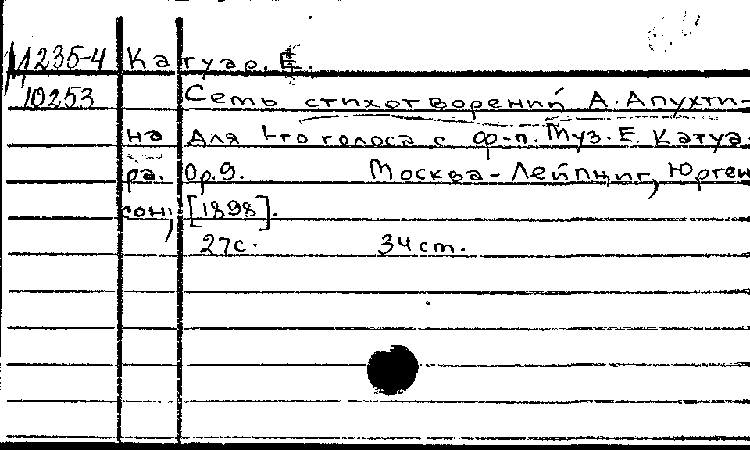 М 235-4 Катуар, Е.
10253 Семь стихотворений А. Апухти-
на для 1-го голоса с ф-п. Муз. Е. Катуа-
ра. Op. 9. Москва-Лейпциг, Юрген
сон, [1898].
27 с. 34 cm.